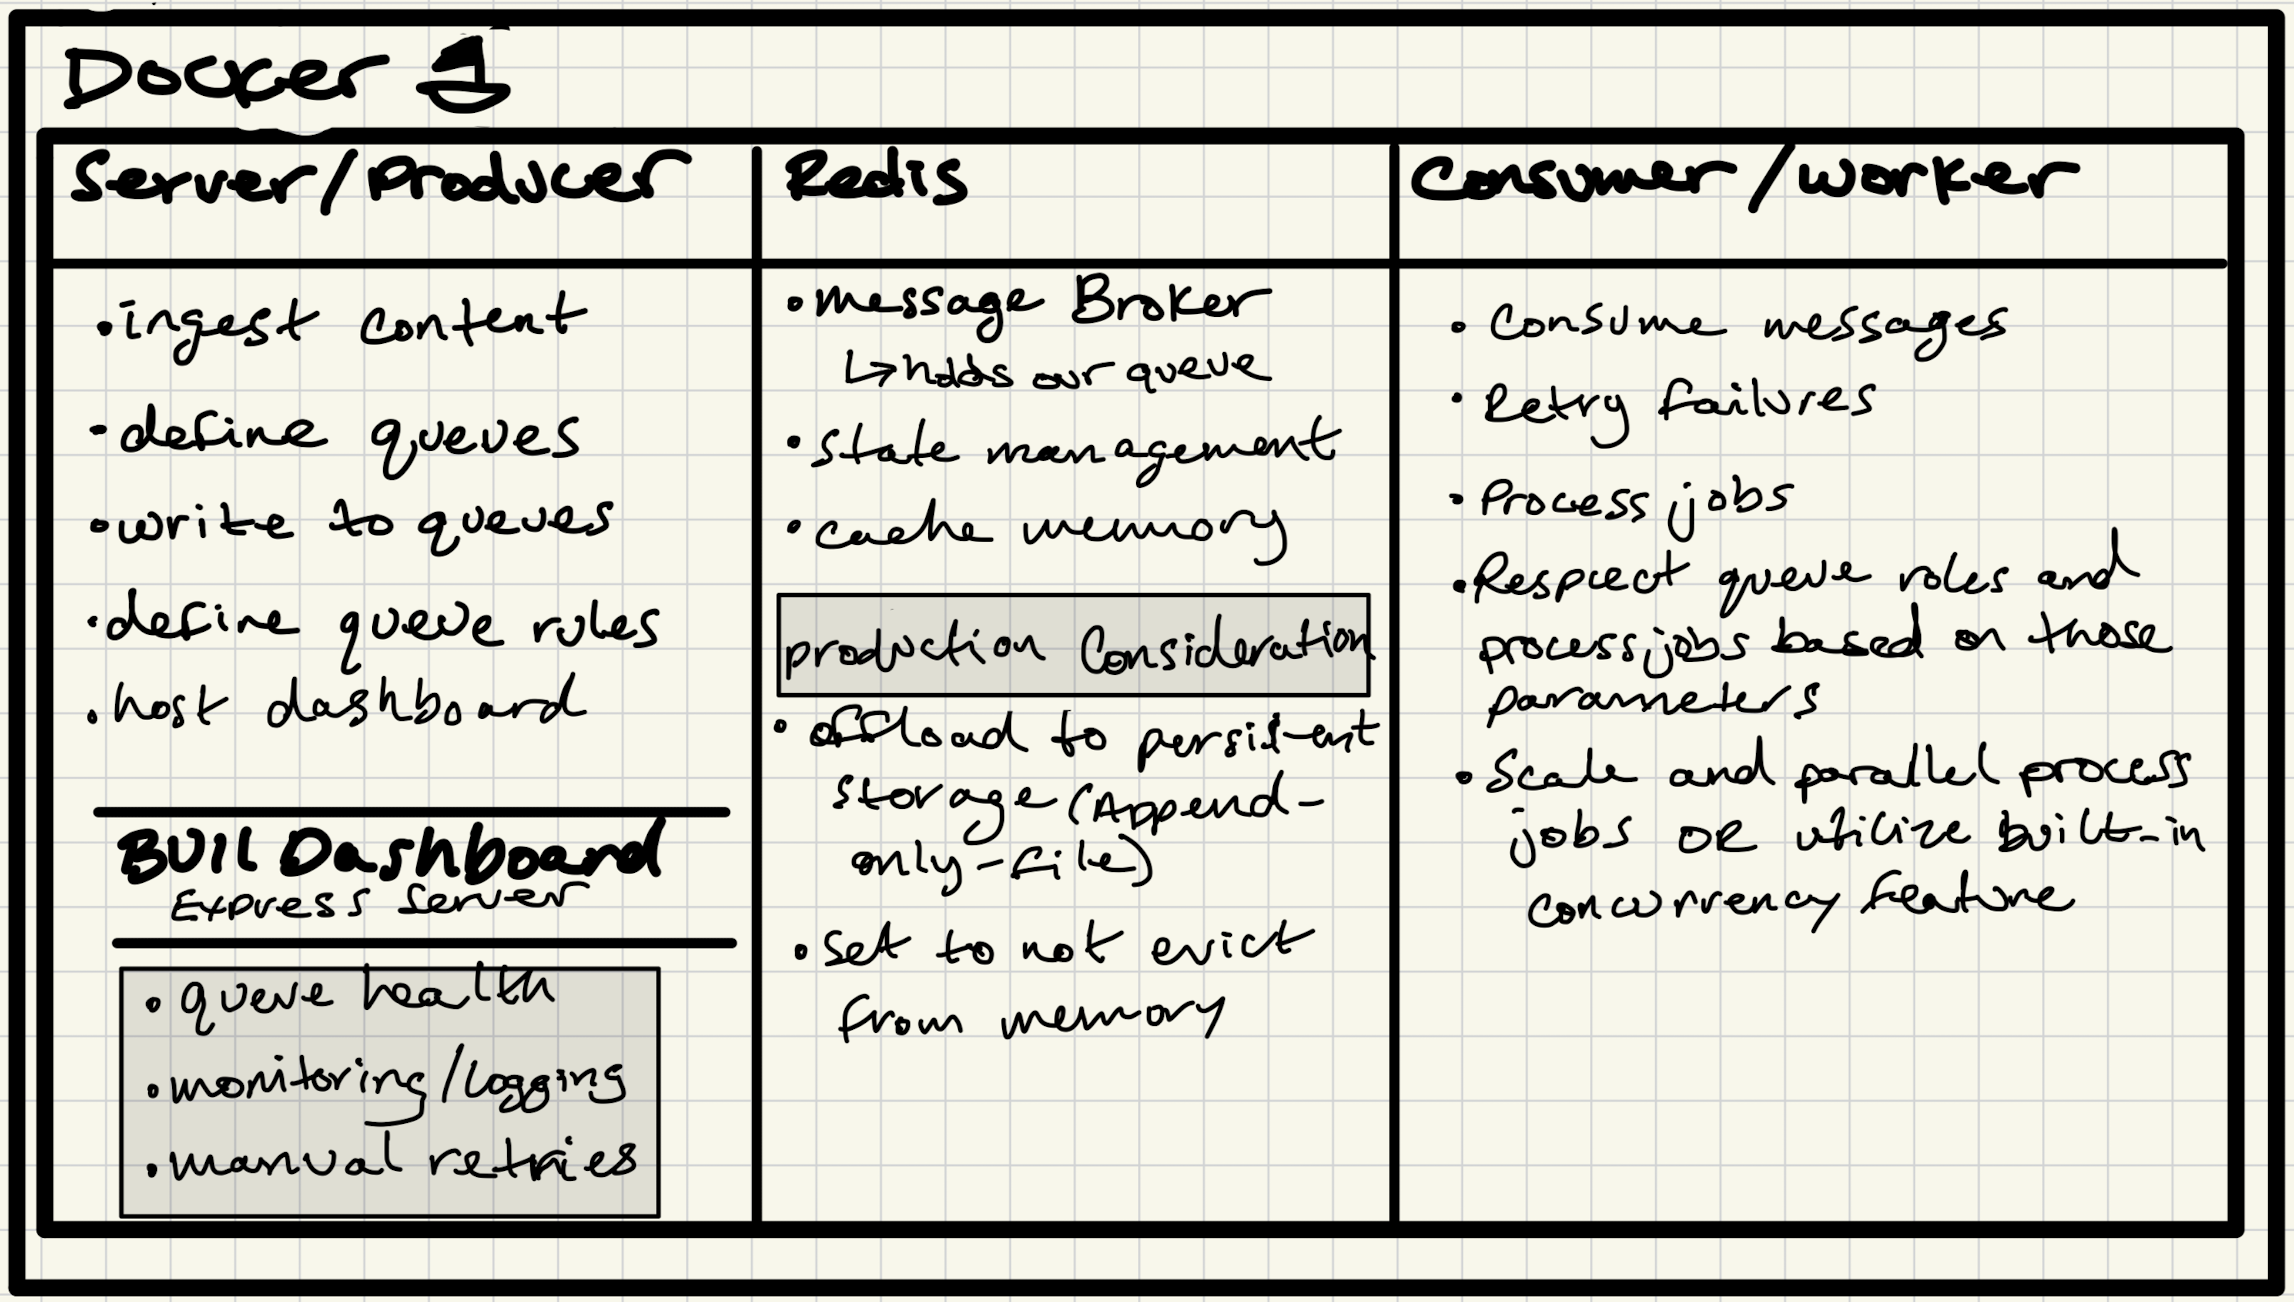 Docker
Server/Producer
• ingest content
• define queues
• write to queues
• define queue rules
• host dashboard
Bull Dashboard
Express Server
• queue health
• monitoring/logging
• manual retries
Redis
• message Broker
↳ holds our queue
• state management
• cache memory
production Consideration
• offload to persistent
storage (Append-
only-file)
• set to not evict
from memory
Consumer/worker
• Consume messages
• Retry failures
• Process jobs
• Respect queue roles and
process jobs based on those
parameters
• Scale and parallel process
jobs OR utilize built-in
concurrency feature